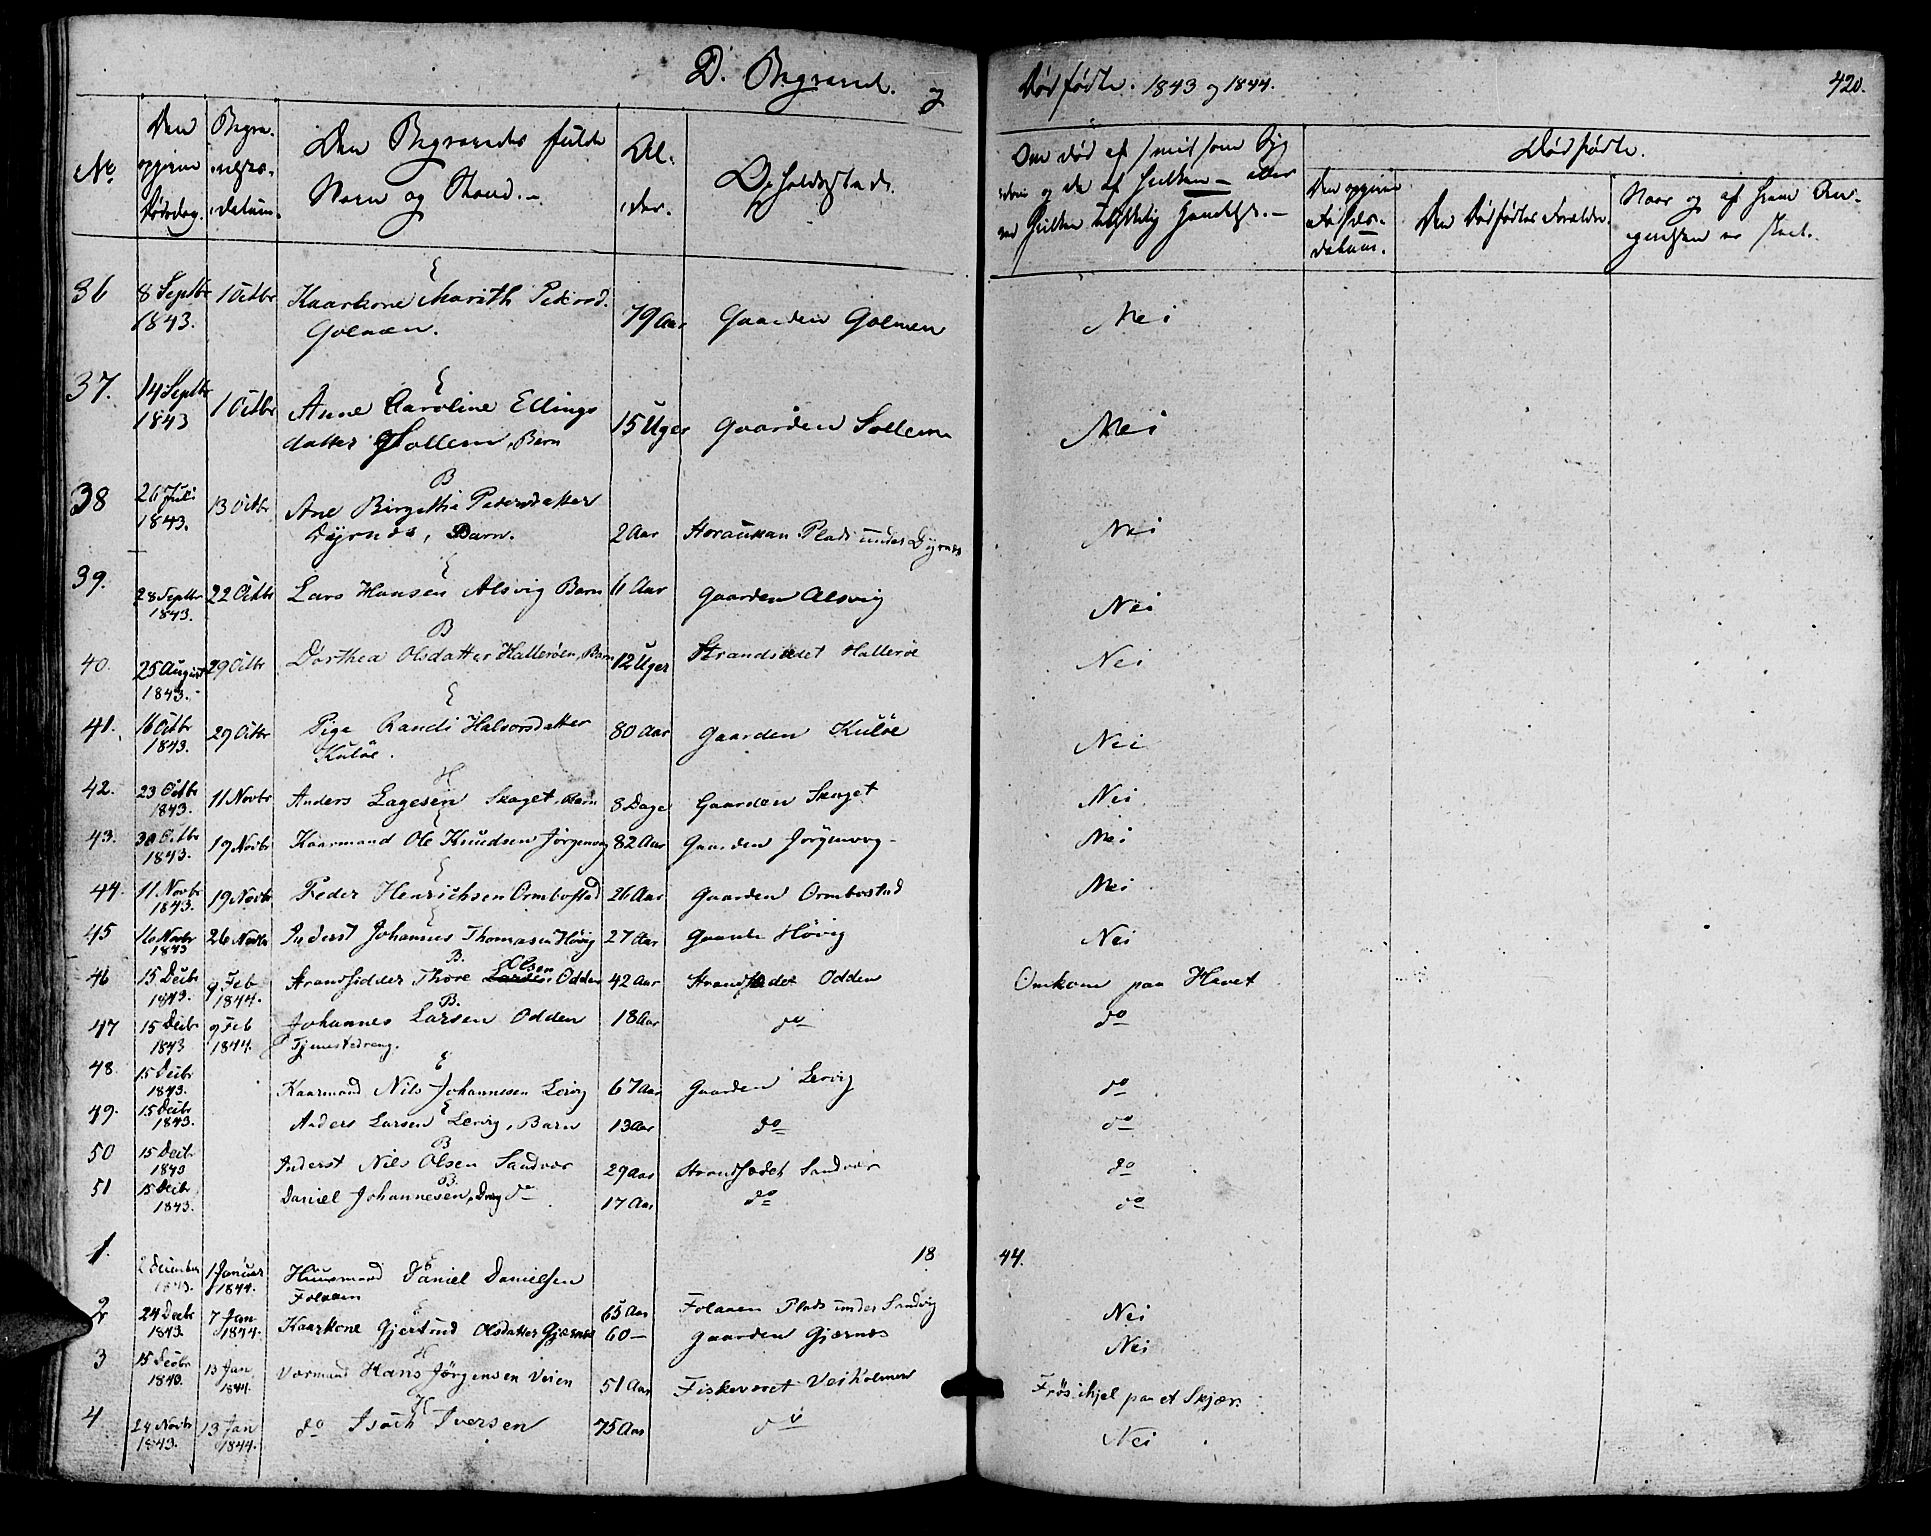 D. Begravede. og Dødfødte. 1843 og 1844. 420.
No. Den opgivne Dødsdag. Begravelses-datum. Den Begravedes fulde Navn og Stand. Alder. Opholdsstæde.
Om død af smitsom Syg
dom og da af hvilken – eller
ved hvilken ulykkelig Hændelse. –
Dødfødte.
Den opgivne Fødselsdatum. Den Dødfødtes Forældre.
Naar og af hvem An-
givelsen er skeet.
36 8 Septbr 1843. 1 Octbr E Kaarkone Marith Pedersd. Golmen. 79 Aar Gaarden Golmen Nei
37. 14 Septbr 1843 1 Octbr E Anne Caroline Ellings datter Sollem, Barn 15 Uger Gaarden Sollem Nei
38 26 Juli 1843. 13 Octbr B Ane Birgitha Pedersdatter Dyrnds, Barn. 2 Aar Plads under Dyrnes Nei
39. 28 Septbr 1843. 22 Octbr E Lars Hansen Alsvig Barn 11 Aar Gaarden Alsvig Nei
40. 25 August 1843. 29 Octbr B Dorthea Olsdatter Hallerøen, Barn 12 Uger Strandsædet Hallerøe Nei
41. 16 Octbr 1843. 29 Octbr E Pige Randi Halvorsdatter Kuløe. 80 Aar Gaarden Kuløe Nei
42. 23 Octbr 1843. 11 Novbr H Anders Lagesen Skaget, Barn 8 Dage Gaarden Skaget Nei
43. 30 Octbr 1843. 19 Novbr E Kaarmand Ole Knudsen Jörgenvog 82 Aar Gaarden Jörgenvog Nei
44. 11 Novbr 1843. 19 Novbr E Peder Henrichsen Ormbostad 26 Aar Gaarden Ormbostad Nei
45 16 Novbr 1843 26 Novbr E Inderst Johannes Thomasen Høvig 27 Aar Gaarde Høvig Nei
46 15 Decbr 1843. 9 Feb 1844. B. Strandsidder Thore Larsen Olsen Odden 42 Aar Strandsædet Odden Omkom paa Havet
47 15 Decbr 1843 9 Feb 1844. B. Johannes Larsen Odden Tjenstedreng. 18 Aar do do
48. 15 Decbr 1843. E Kaarmand Nils Johannesen Lervig 67 Aar Gaarden Lervig do
49. 15 Decbr 1843. E Anders Larsen Lervig, Barn 13 Aar do do
50 15 Decbr 1843 B Inderst Nils Olsen Sandvær 29 Aar Strandsædet Sandvær do
51 15 Decbr 1843. B. Daniel Johannesen, Dreng do 17 Aar do do
1844.
1. 2 December 1843. 1 Januar 1844. E Huusmand Daniel Danielsen Folaaen 65 Aar Folaaen Plads under Sandvig Nei
2 24 Decbr 1843. 7 Jan 1844. E Kaarkone Gjertrud Olsdatter Gjærnes 60 – Gaarden Gjærnes Nei
3 15 Decbr 1843. 13 Jan 1844. H Værmand Hans Jörgensen Veien 51 Aar Fiskeværet Veiholmen Frøs ihjel paa et Skjær
4 24 Novbr 1843. 13 Jan 1844. H do Isach Iversen 75 Aar do Nei